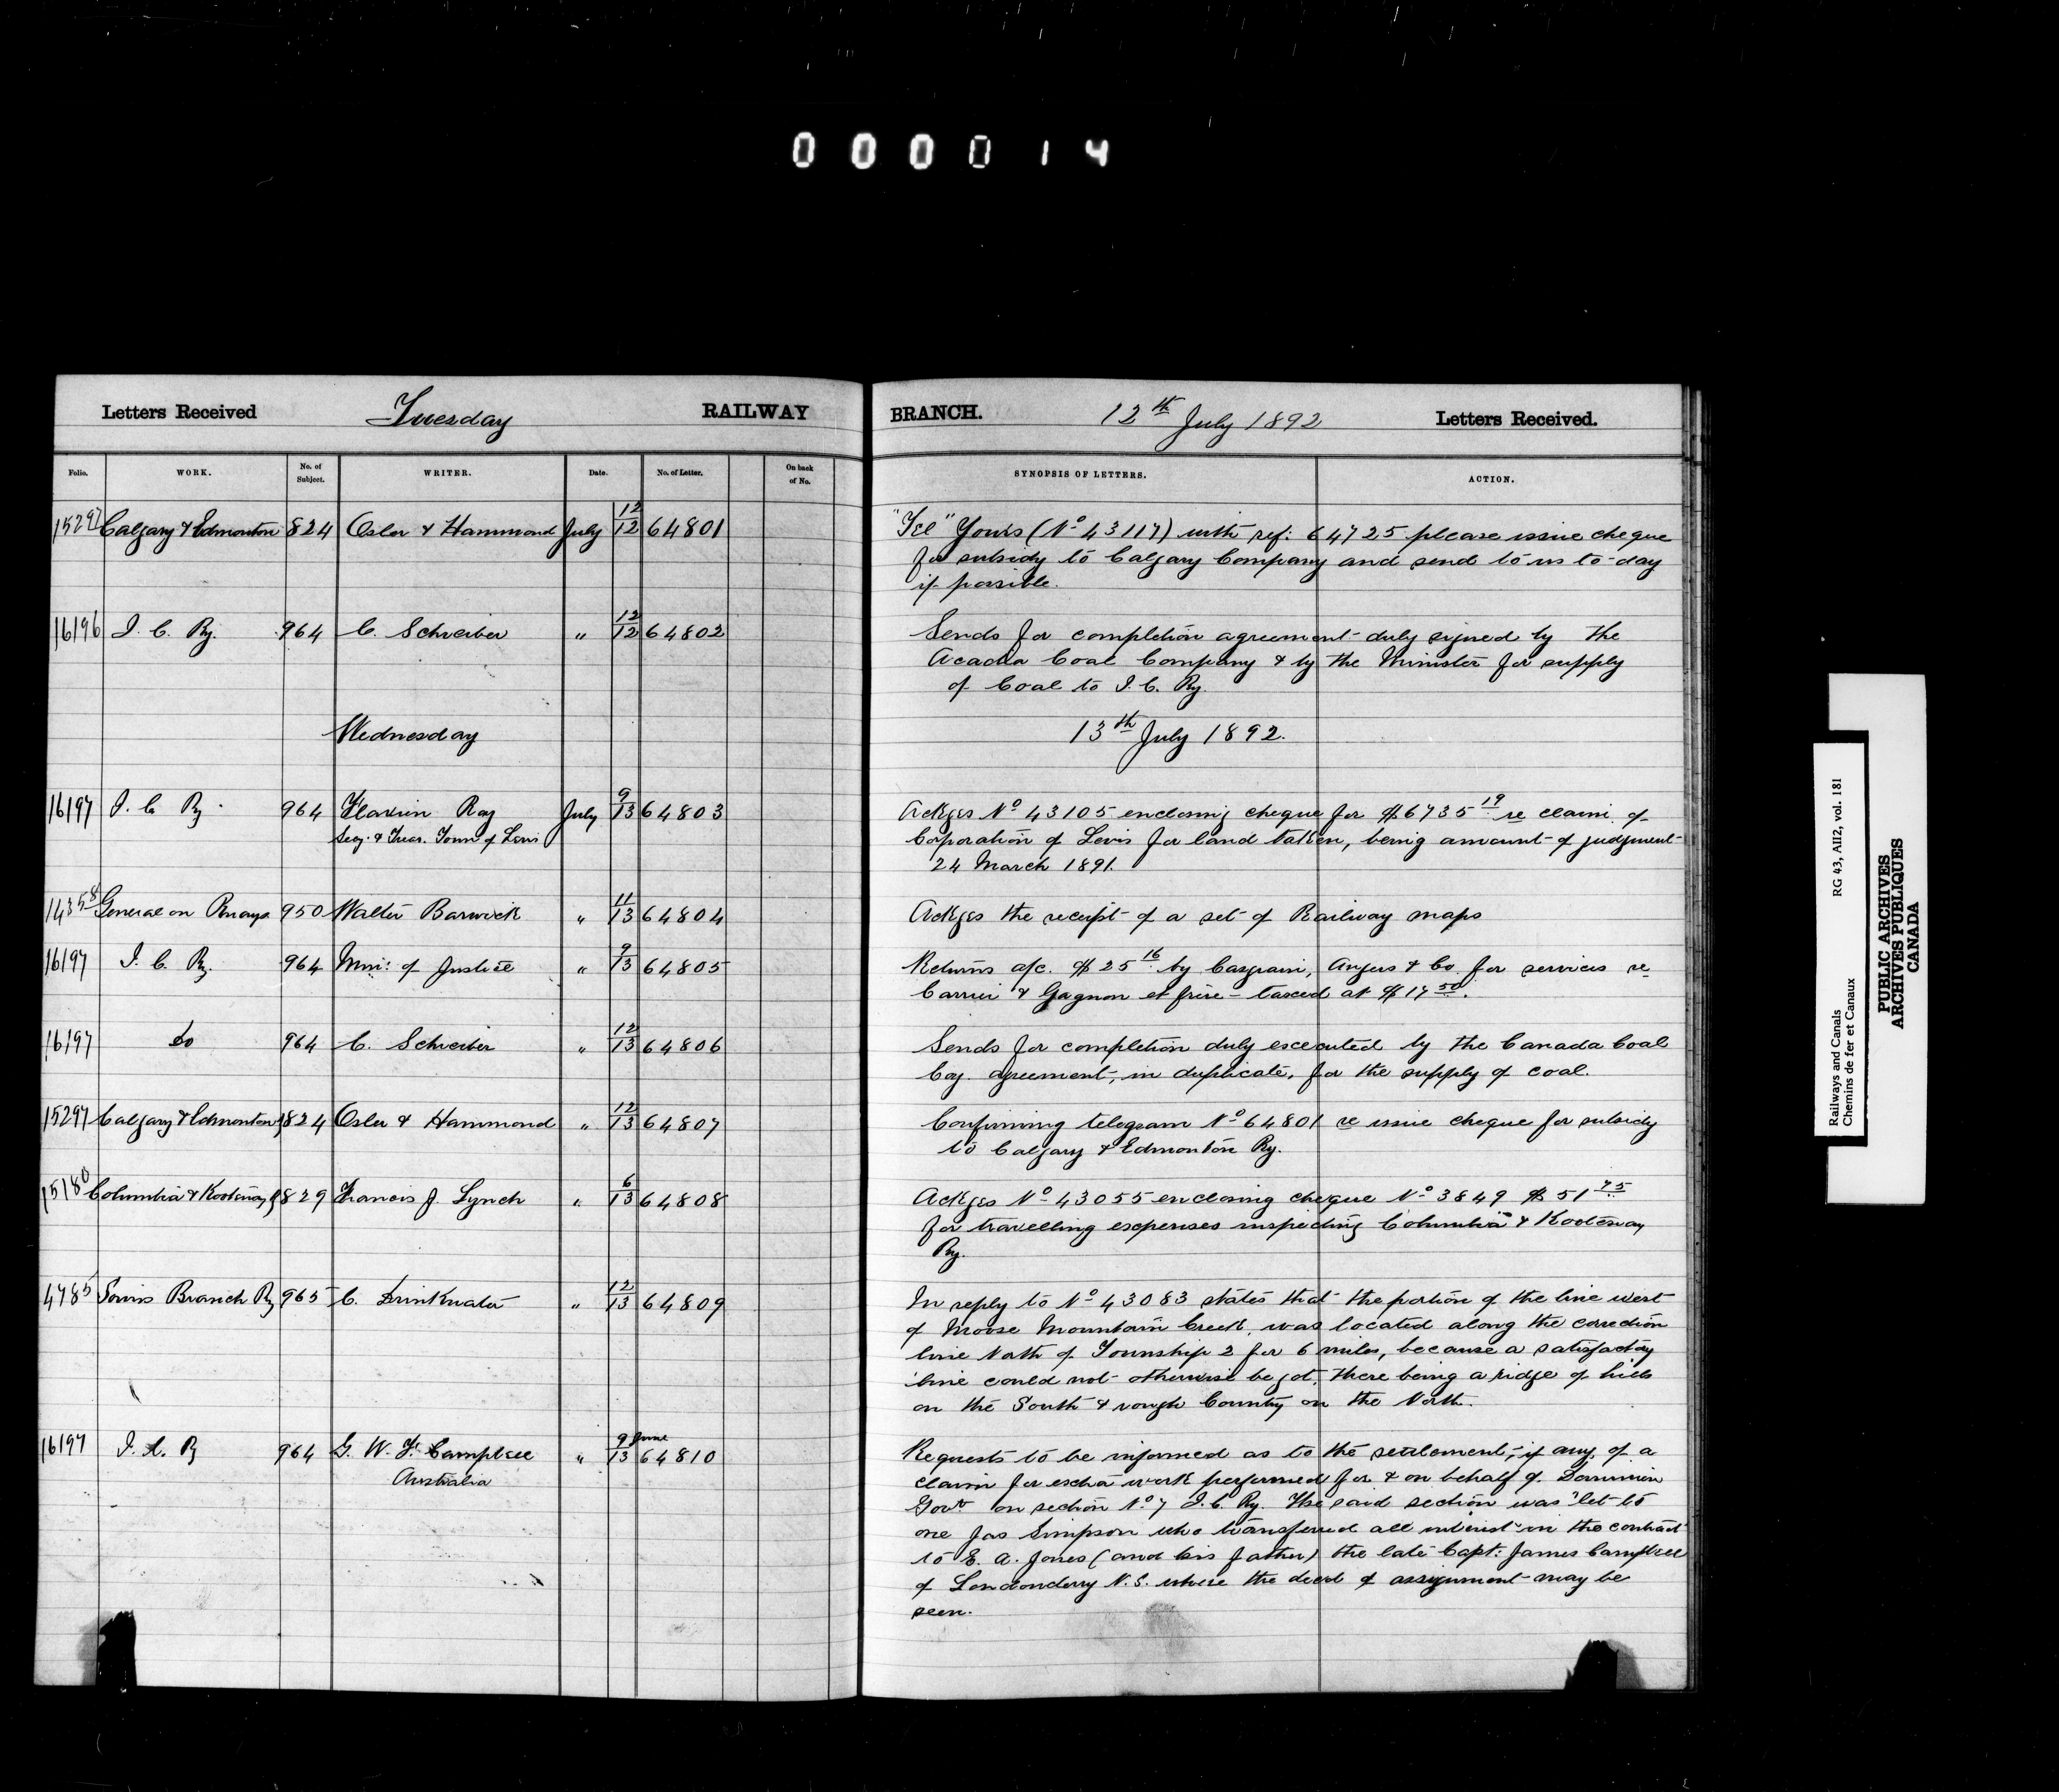 000014
Letters Received Tuesday RAILWAY BRANCH. 12th July 1892 Letters Received.
Folio. WORK. No. of Subject. WRITER. Date. No. of Letter. On back of No. SYNOPSIS OF LETTERS. ACTION.
15297 Calgary & Edmonton 824 Osler & Hammond July 12/12 64801 "Tel" Yours (No 43117) with ref: 64725 please issue cheque
for subsidy to Calgary Company and send to us to-day
if possible.
16196 I. C. Ry. 964 C. Schreiber " 12/12 64802 Sends for completion agreement duly signed by the
Acadia Coal Company & by the Minister for supply
of Coal to I. C. Ry.
Wednesday 13th July 1892.
16197 I. C. Ry. 964 Flavien Roy July 9/13 64803 Ackges No 43105 enclosing cheque for $6735 19 re claim of
Secy. & Treas. Town of Levis Corporation of Levis for land taken, being amount of judgment
24 March 1891.
14358 General on Rways 950 Walter Barwick " 11/13 64804 Ackges the receipt of a set of Railway maps
16197 I. C. Ry. 964 Min: of Justice " 9/13 64805 Returns a/c. $25 16 by Casgrain, Angers & Co for services re
Carrier & Gagnon et frère - taxed at $17 50.
16197 do 964 C. Schreiber " 12/13 64806 Sends for completion duly executed by the Canada Coal
Coy. agreement, in duplicate, for the supply of coal.
15297 Calgary & Edmonton Ry 824 Osler & Hammond " 12/13 64807 Confirming telegram No 64801 re issue cheque for subsidy
to Calgary & Edmonton Ry.
15180 Columbia & Kootenay Ry 829 Francis J. Lynch " 6/13 64808 Ackges No 43055 enclosing cheque No 3849 $51 75
for travelling expenses inspecting Columbia & Kootenay
Ry.
4785 Souris Branch Ry 965 C. Drinkwater " 12/13 64809 In reply to No 43083 states that the portion of the line west
of Moose Mountain Creek, was located along the correction
line North of Township 2 for 6 miles, because a satisfactory
line could not otherwise be got, there being a ridge of hills
on the South & rough Country on the North.
16197 I. C. R 964 G. W. F. Campbell " 9 June/13 64810 Requests to be informed as to the settlement, if any, of a
Australia claim for extra work performed for & on behalf of Dominion
Govt on section No 7 I. C. Ry. The said section was let to
one Jas Simpson who transferred all interest in the contract
to E. A. Jones (and his father) the late Capt: James Campbell
of Londonderry N. S. where the deed of assignment may be
seen.
Railways and Canals RG 43, AII2, vol. 181
Chemins de fer et Canaux
PUBLIC ARCHIVES
ARCHIVES PUBLIQUES
CANADA